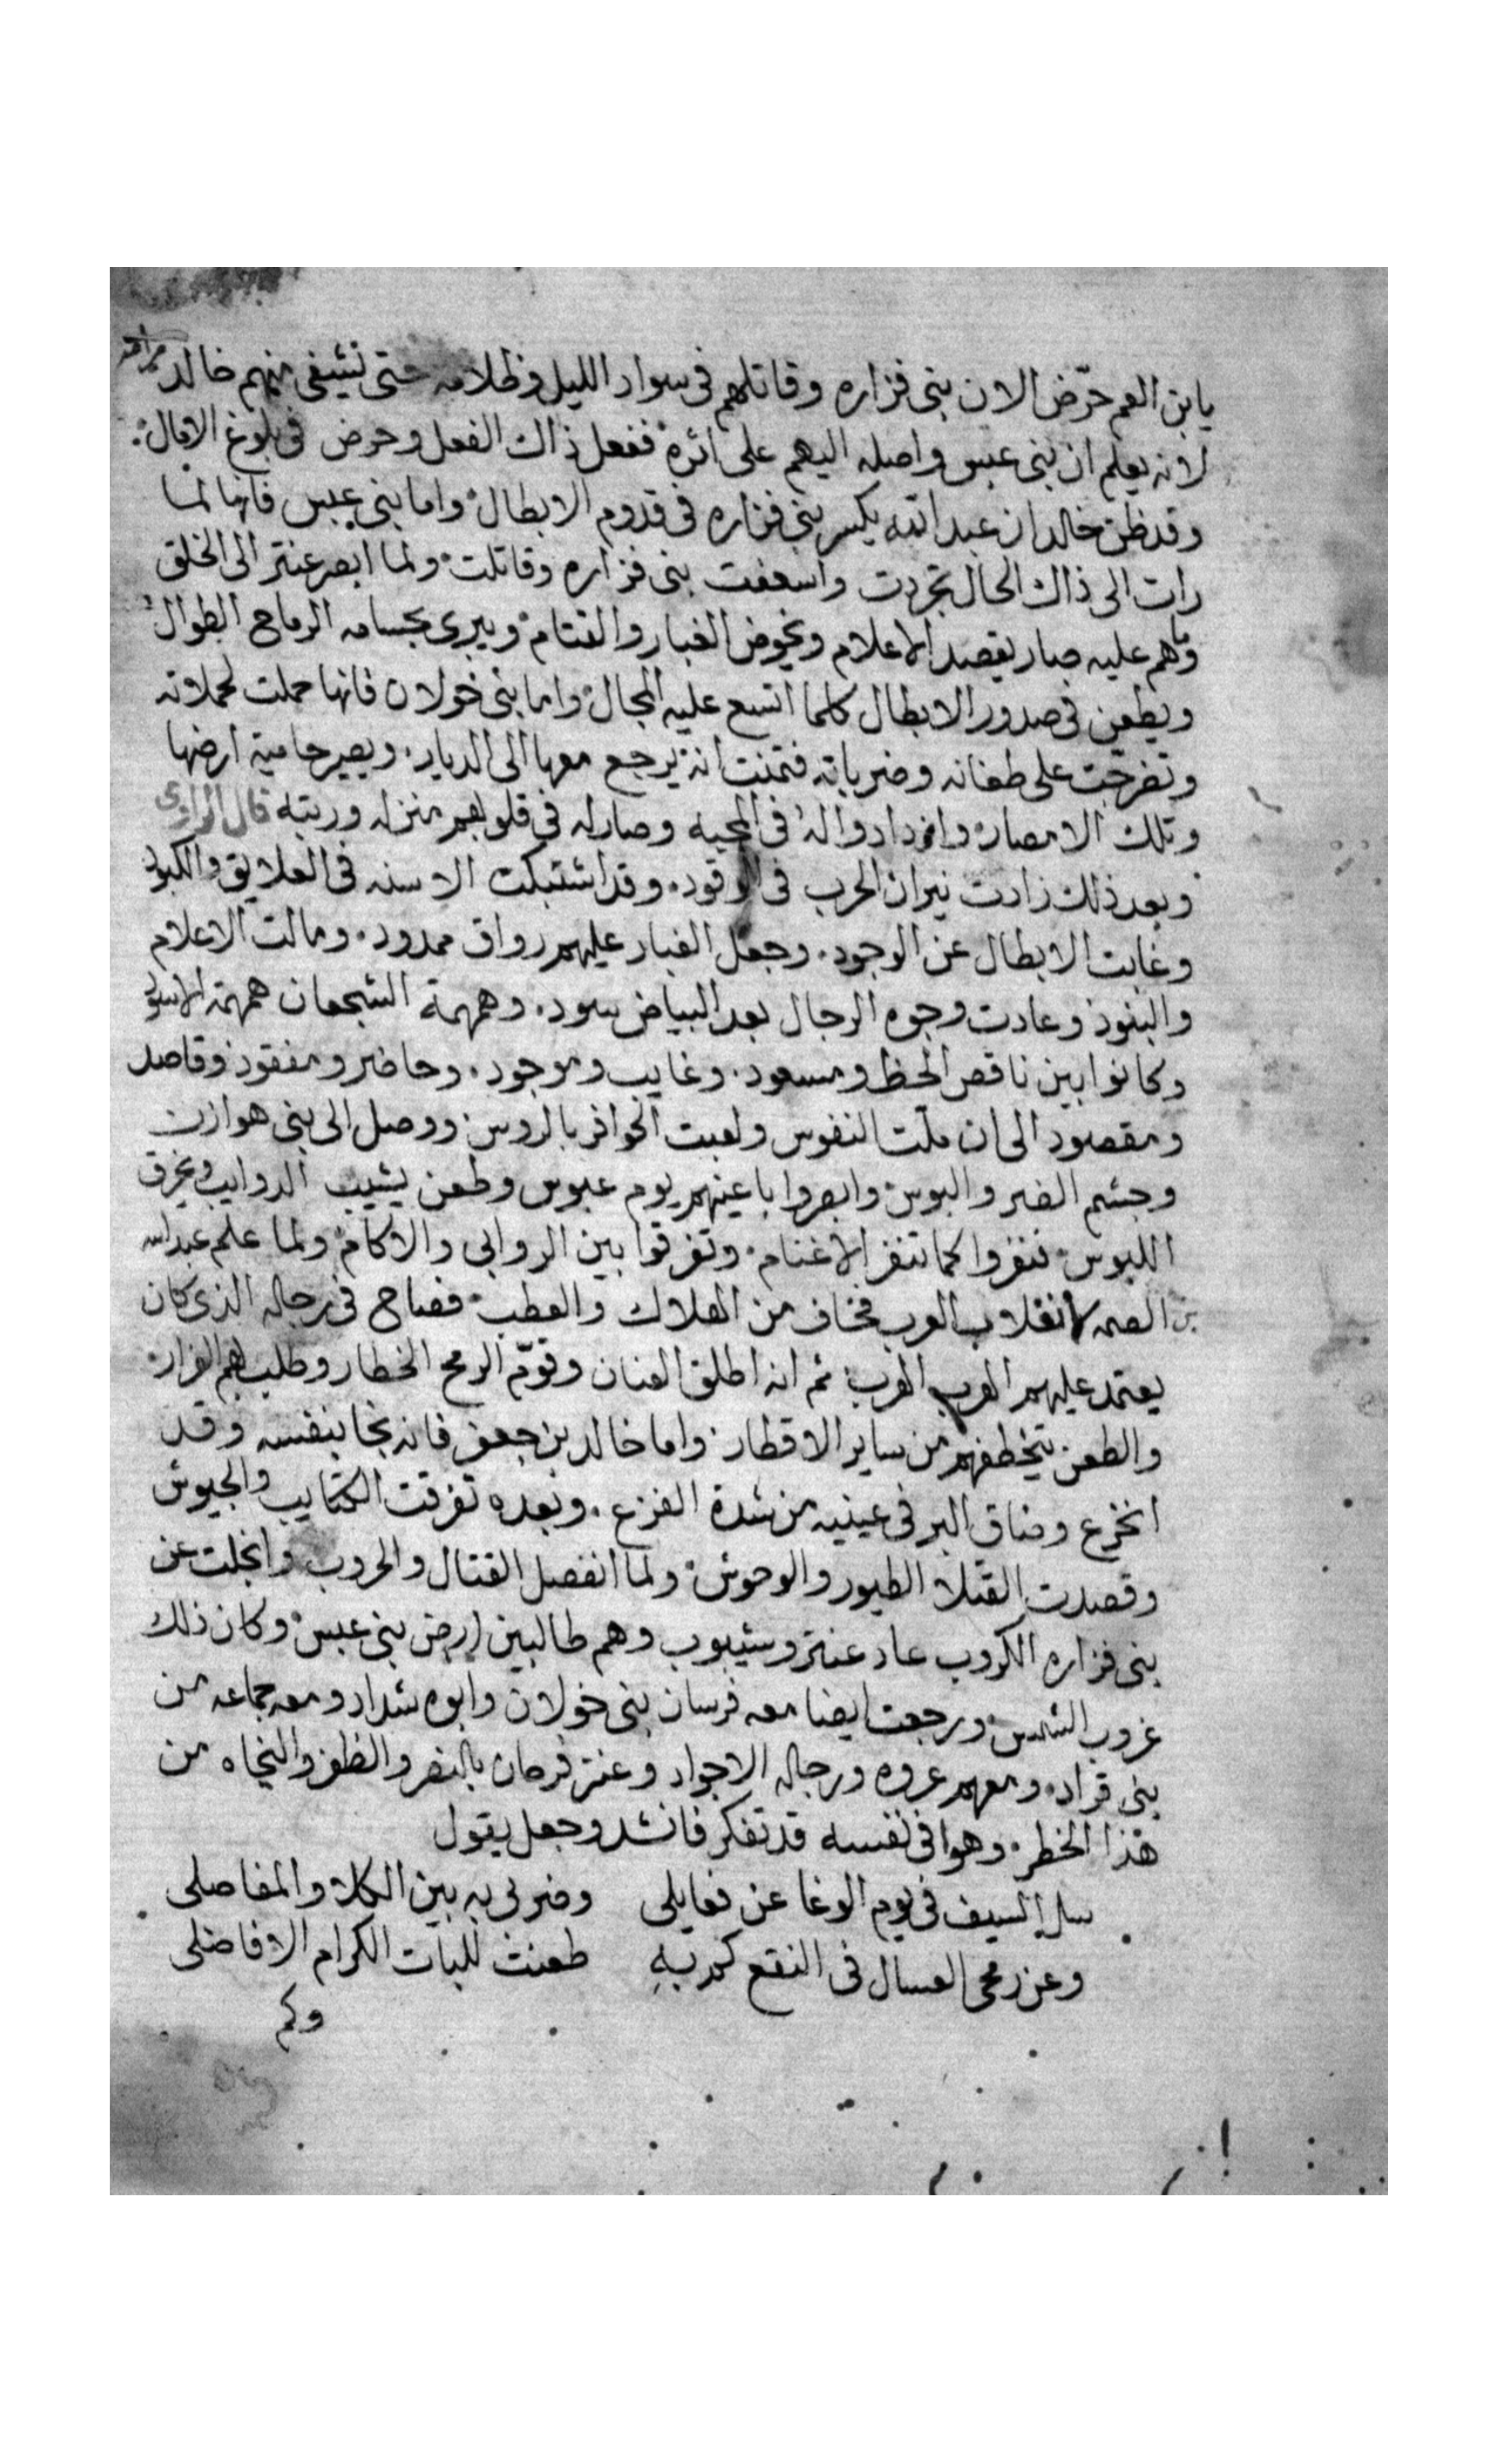 يابن العم حرّض الان بنى فزاره وقاتلهم فى سواد الليل وظلامه حتى نشفى منهم خالد
لانه يعلم ان بنى عبس واصله اليهم على اثره ففعل ذاك الفعل وحرض فى بلوغ الامال
وقد ظن خالد ان عبد الله يكسر بنى فزاره فى قدوم الابطال واما بنى عبس فانها لما
رات الى ذاك الحال تجردت واسعفت بنى فزاره وقاتلت ولما ابصر عنتر الى الخلق
وما هم عليه صار يقصد الاعلام ويخوض الغبار والقتام ويبرى بحسامه الرماح الطوال
ويطعن فى صدور الابطال كلما اتسع عليه المجال واما بنى خولان فانها حملت لحملاته
وتفرجت على طعناته وضرباته فتمنت انه يرجع معها الى الديار ويصير حامية ارضها
وتلك الامصار وازدادوا له فى المحبه وصار له فى قلوبهم منزله ورتبه قال الراوى
وبعد ذلك زادت نيران الحرب فى الوقود وقد اشتبكت الاسنه فى العلايق والكبود
وغابت الابطال عن الوجود وجعل الغبار عليهم رواق ممدود ومالت الاعلام
والبنود وعادت وجوه الرجال بعد البياض سود وهمهمة الشجعان همهمة الاسود
وكانوا بين ناقص الحظ ومسعود وغايب وموجود وحاضر ومفقود وقاصد
ومقصود الى ان ملت النفوس ولعبت الحوافر بالروس ووصل الى بنى هوازن
وجشم الضر والبوس وابصروا باعينهم يوم عبوس وطعن يشيب الدوايب ويخرق
اللبوس فنفروا كما تنفر الاغنام وتفرقوا بين الروابى والاكام ولما علم عبد الله
بن الصمه لانقلاب العرب فخاف من الهلاك والعطب فصاح فى رجاله الذى كان
يعتمد عليهم الهرب الهرب ثم انه اطلق العنان وقوّم الرمح الخطار وطلب بهم الفرار
والطعن يتخطفهم من ساير الاقطار واما خالد بن جعفر فانه نجا بنفسه وقد
انخرع وضاق البر فى عينيه من شدة الفزع وبعده تفرقت الكتايب والجيوش
وقصدت القتلا الطيور والوحوش ولما انفصل القتال والحروب وانجلت عن
بنى فزاره الكروب عاد عنتر وشيبوب وهم طالبين ارض بنى عبس وكان ذلك
غروب الشمس ورجعت ايضا معه فرسان بنى خولان وابوه شداد ومعه جماعه من
بنى قراد ومعهم عروه ورجاله الاجواد وعنتر فرحان بالنصر والظفر والنجاه من
هذا الخطر وهوا فى نفسه قد تفكر فانشد وجعل يقول
سل السيف فى يوم الوغا عن فعايلى وضربى به بين الكلا والمفاصلى
وعن رمحى العسال فى النقع كم به طعنت للبات الكرام الافاضلى
وكم